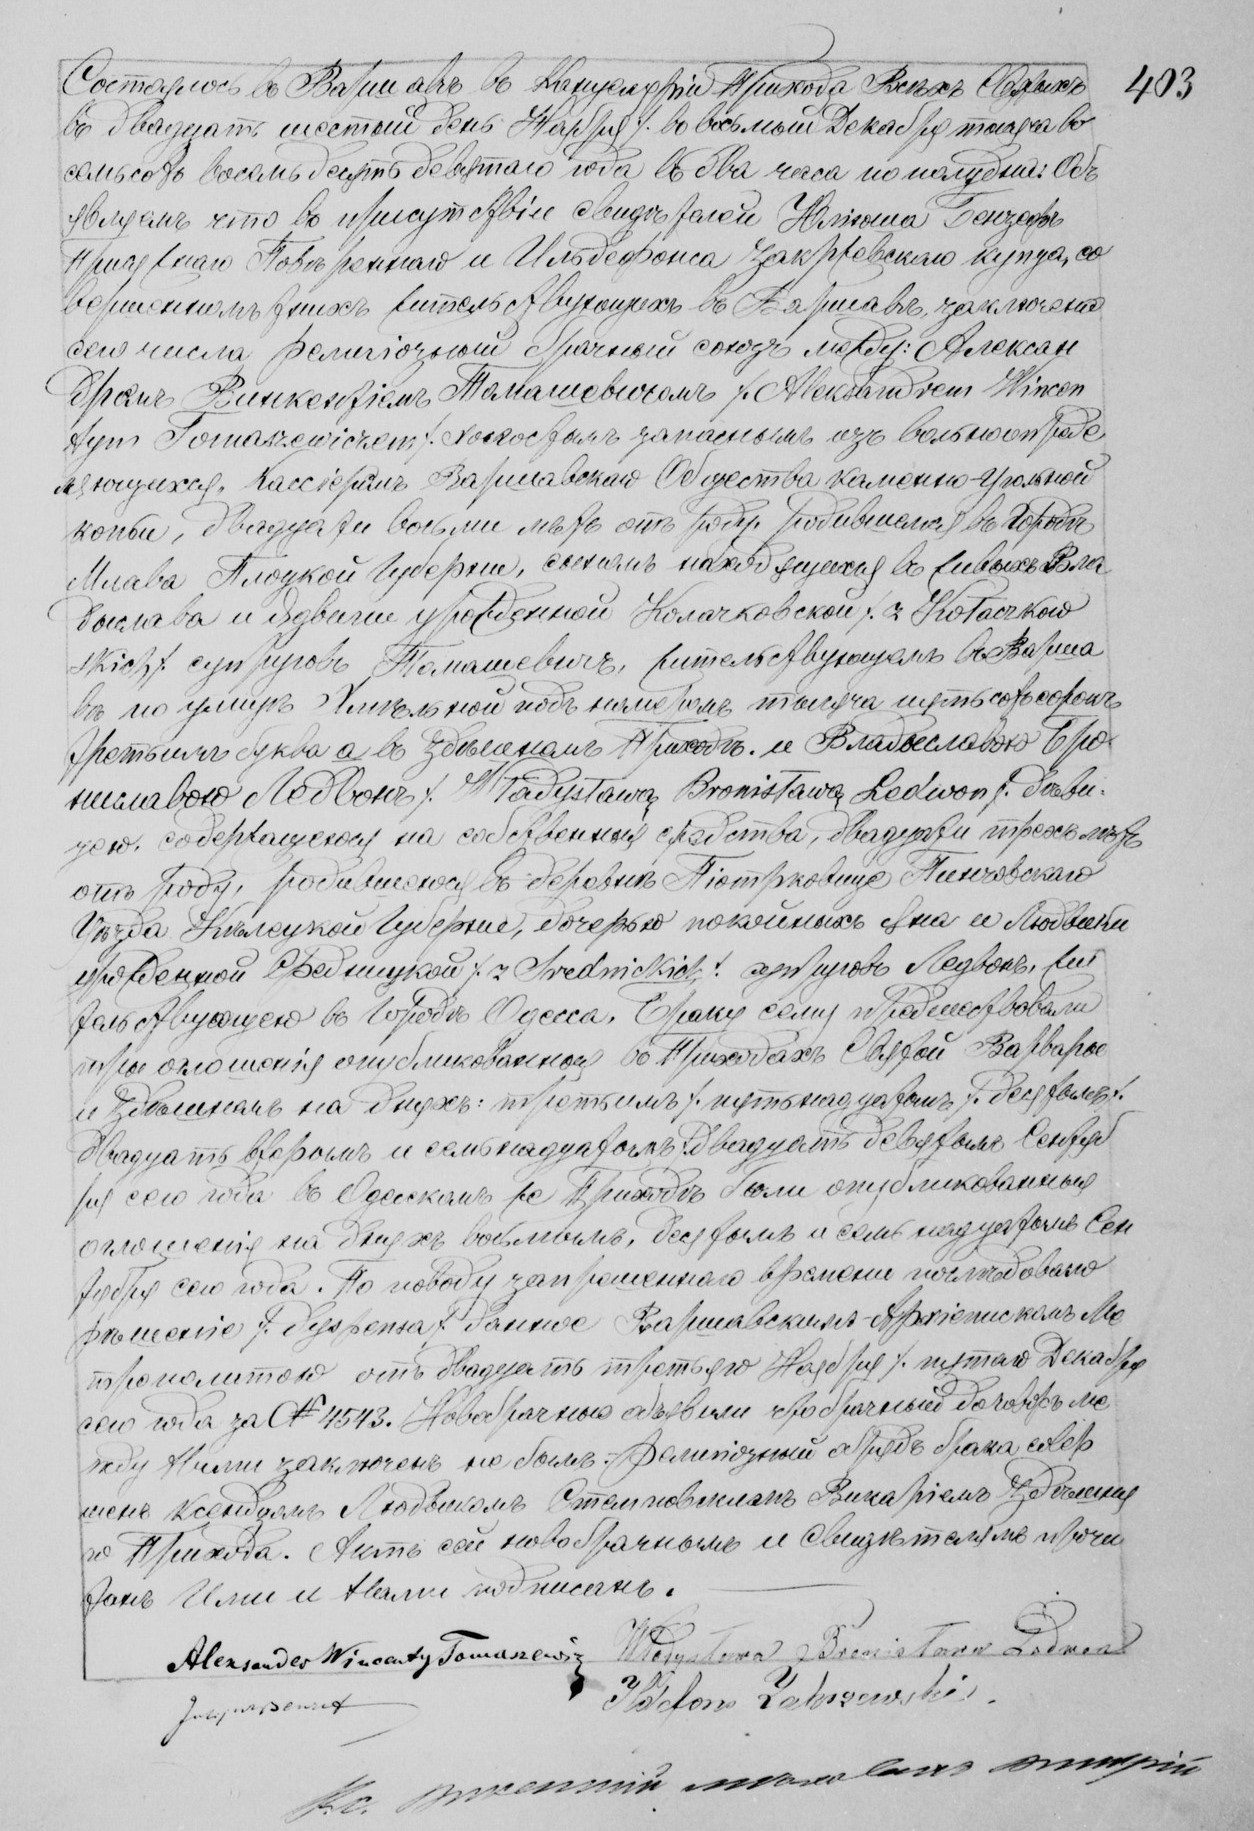 403
Состоялось въ Варшавѣ въ Канцеляріи Прихода Всѣхъ Святыхъ
въ двадцать шестый день Ноября /. восьмый Декабря тысяча во
семьсотъ восемьдесятъ девятаго года въ два часа по полудни: Объ
являемъ что въ присутствіи свидѣтелей Юліюша
Присяжнаго Повѣреннаго и Ильдефонса Закржевскаго купца, со
вершеннолѣтнихъ жительствующихъ въ Варшавѣ, заключенъ
сего числа религіозный брачный союзъ между: Алексан
дромъ Викентіемъ Томашевичемъ /. Aleksandrem Wincen
tym Tomaszewiczem /. холостымъ запаснымъ изъ вольноопредѣ
ляющихся, кассіеромъ Варшавскаго Общества каменно-угольной
копи, двадцати восьми лѣтъ отъ роду, родившемся въ Городѣ
Млава Плоцкой Губерніи, сыномъ находящихся въ живыхъ Вла
дыслава и Ядвиги урожденной Колачковской /. z Kołaczkow
skich /. супруговъ Томашевичъ, жительствующемъ въ Варша
вѣ по улицѣ Хмѣльной подъ номеромъ тысяча пятьсотъ сорокъ
третьимъ буква а въ здѣшнемъ Приходѣ. и Владыславою Бро
ниславою Ледвонъ /. Władysławą Bronisławą Ledwon /. дѣви
цею, содержащеюся на собственныя средства, двадцати трехъ лѣтъ
отъ роду, родившеюся въ деревнѣ Піотрковице Пинчовскаго
Уѣзда Кѣлецкой Губерніи, дочерью покойныхъ Яна и Людвики
урожденной Средницкой /. z Srednickich /. супруговъ Ледвонъ, жи
тельствующею въ Городѣ Одесса. Браку сему предшествовали
три оглашенія опубликованныя въ Приходахъ Святой Варвары
и Здѣшнемъ на дняхъ: третьимъ /. пятьнадцатымъ /. десятымъ /.
двадцать вторымъ и семьнадцатымъ /. двадцать девятымъ Сентяб
ря сего года въ Одесскомъ же Приходѣ были опубликованныя
оглашенія на дняхъ восьмымъ, десятымъ и семьнадцатымъ Сен
тября сего года. По поводу запрещеннаго времени послѣдовало
рѣшеніе /. dyspensa /. данное Варшавскимъ Архіепископомъ Ме
трополитою отъ двадцать третьяго Ноября /. пятаго Декабря
сего года за № 4543. Новобрачные объявили что брачный договоръ ме
жду ними заключенъ не былъ. Религіозный обрядъ брака совер
шенъ Ксендзомъ Людвикомъ Викаріемъ Здѣшня
го Прихода. Актъ сей новобрачнымъ и свидѣтелямъ прочи
танъ Ими и Нами подписанъ.
Alexander Wincenty Tomaszewicz Władysława Bronisława Ledwon
Ildefons Zakrzewski.
Кс.